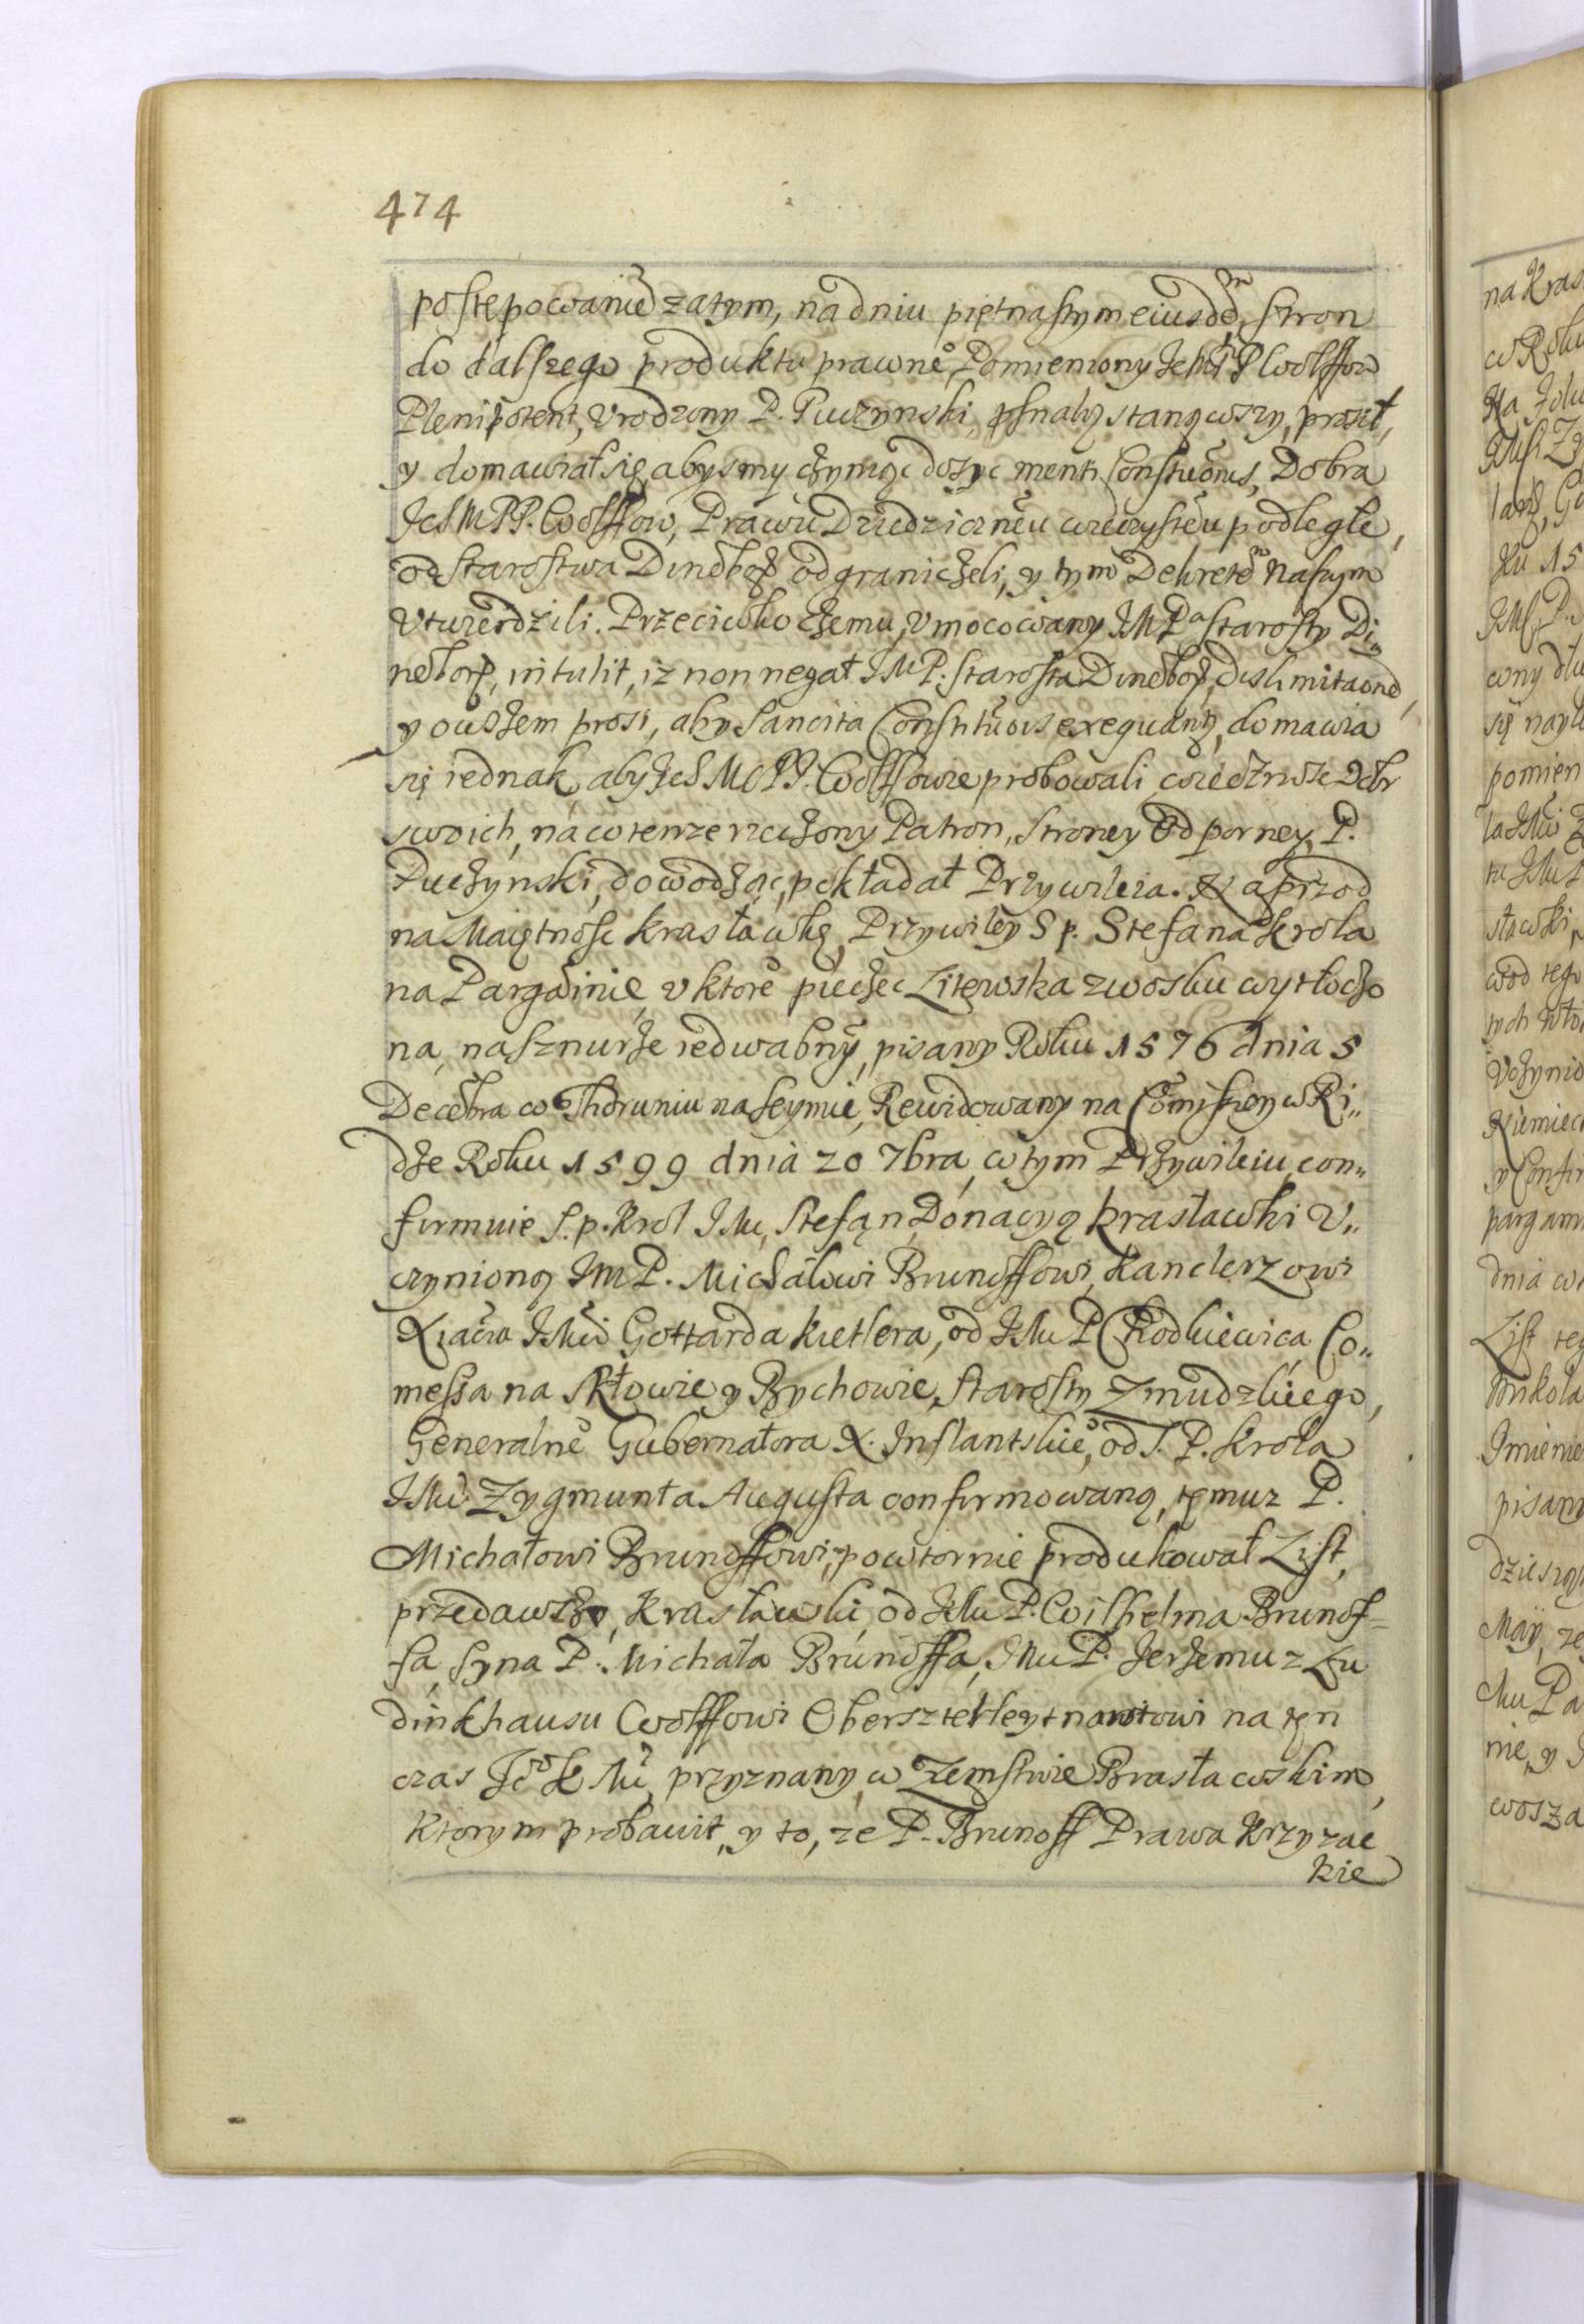 474
postępowanie zatym, na dniu piętnastym eiusdem, stron
do dalszego produktu prawne͠, Pomieniony IchM PP Wolffow
Plenipotent, Urodzony P. Puczynski, psnalr stanąwszy, prosił,
y domawiał się, abysmy czyniąc dosyc menti Constuonis, Dobra
IchMPP. Wolffow, Prawu Dziedziczneu wieczysteu podległe,
od Starostwa Dinebor. odgraniczeli, y tym Dekretem Naszym
Utwierdzili. Przeciwko czemu, Umocowany IMPa Starosty Di„
nebor, intulit, iz non negat IMP. Starosta Dinebor, dislimitaone,
y owszem prosi, aby Sancita Constituois exequaną, domawia
się iednak, aby IchMPP. Wolffowie probowali wiecznosc Dobr
swoich, na co tenze rzeczony Patron, Strony Odporney, P.
Puczynski, dowodząc, pokładał Przywileia. Naprzod
na Maiętnosc Krasławkę, Przywiley S p. Stefana Krola
na Pargaminie, u ktore͠ pieczec Litewska z wosku wytłoczo
na, na sznurze iedwabny, pisany Roku 1576 dnia 5
Decebra w Thoruniu na Seymie, Rewidowany na Comissiey w Ri„
dze Roku 1599 dnia 20 7bra, w tym Przywileiu, con„
firmuie S. p. Krol IMc, Stefan, Donacyą Krasławki U„
czynioną IMP. Michałowi Brunoffowi, Kanclerzowi
Xiącia IMci Gottarda Kietlera, od IMc P Chodkiewica Co„
messa na Skłowie y Bychowie, Starosty Zmudzkiego,
Generalne͠ Gubernatora X. Inflantskie͠, od S. P. Krola
IMci Zygmunta Augusta confirmowaną, temuz P.
Michałowi Brunoffowi, powtornie produkował List,
przedawczy, Krasławki, od IMc P. Wilhelma Brunof=
fa, Syna P. Michała Brunoffa, IMc P. Jerzemu z Lu
dinkhausu Wolffowi Obersztekleytnantowi na ten
czas Ico K Mci, przyznany, w Zemstwie Brasławskim,
Ktorym probawit, y to, ze P. Brunoff Prawa Krzyzac
kie